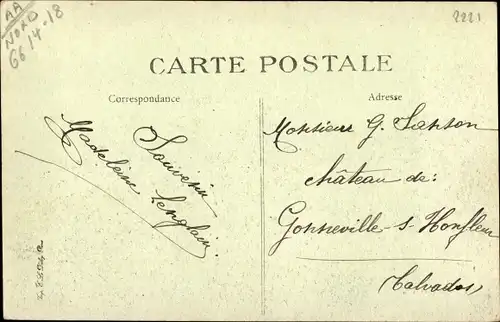 AA
NORD
66 14-18
2221
CARTE POSTALE
Correspondance
Adresse
Souvenir
Madeleine Lenglain
Monsieur G. Sanson
château de:
Gonneville-s-Honfleur
Calvados